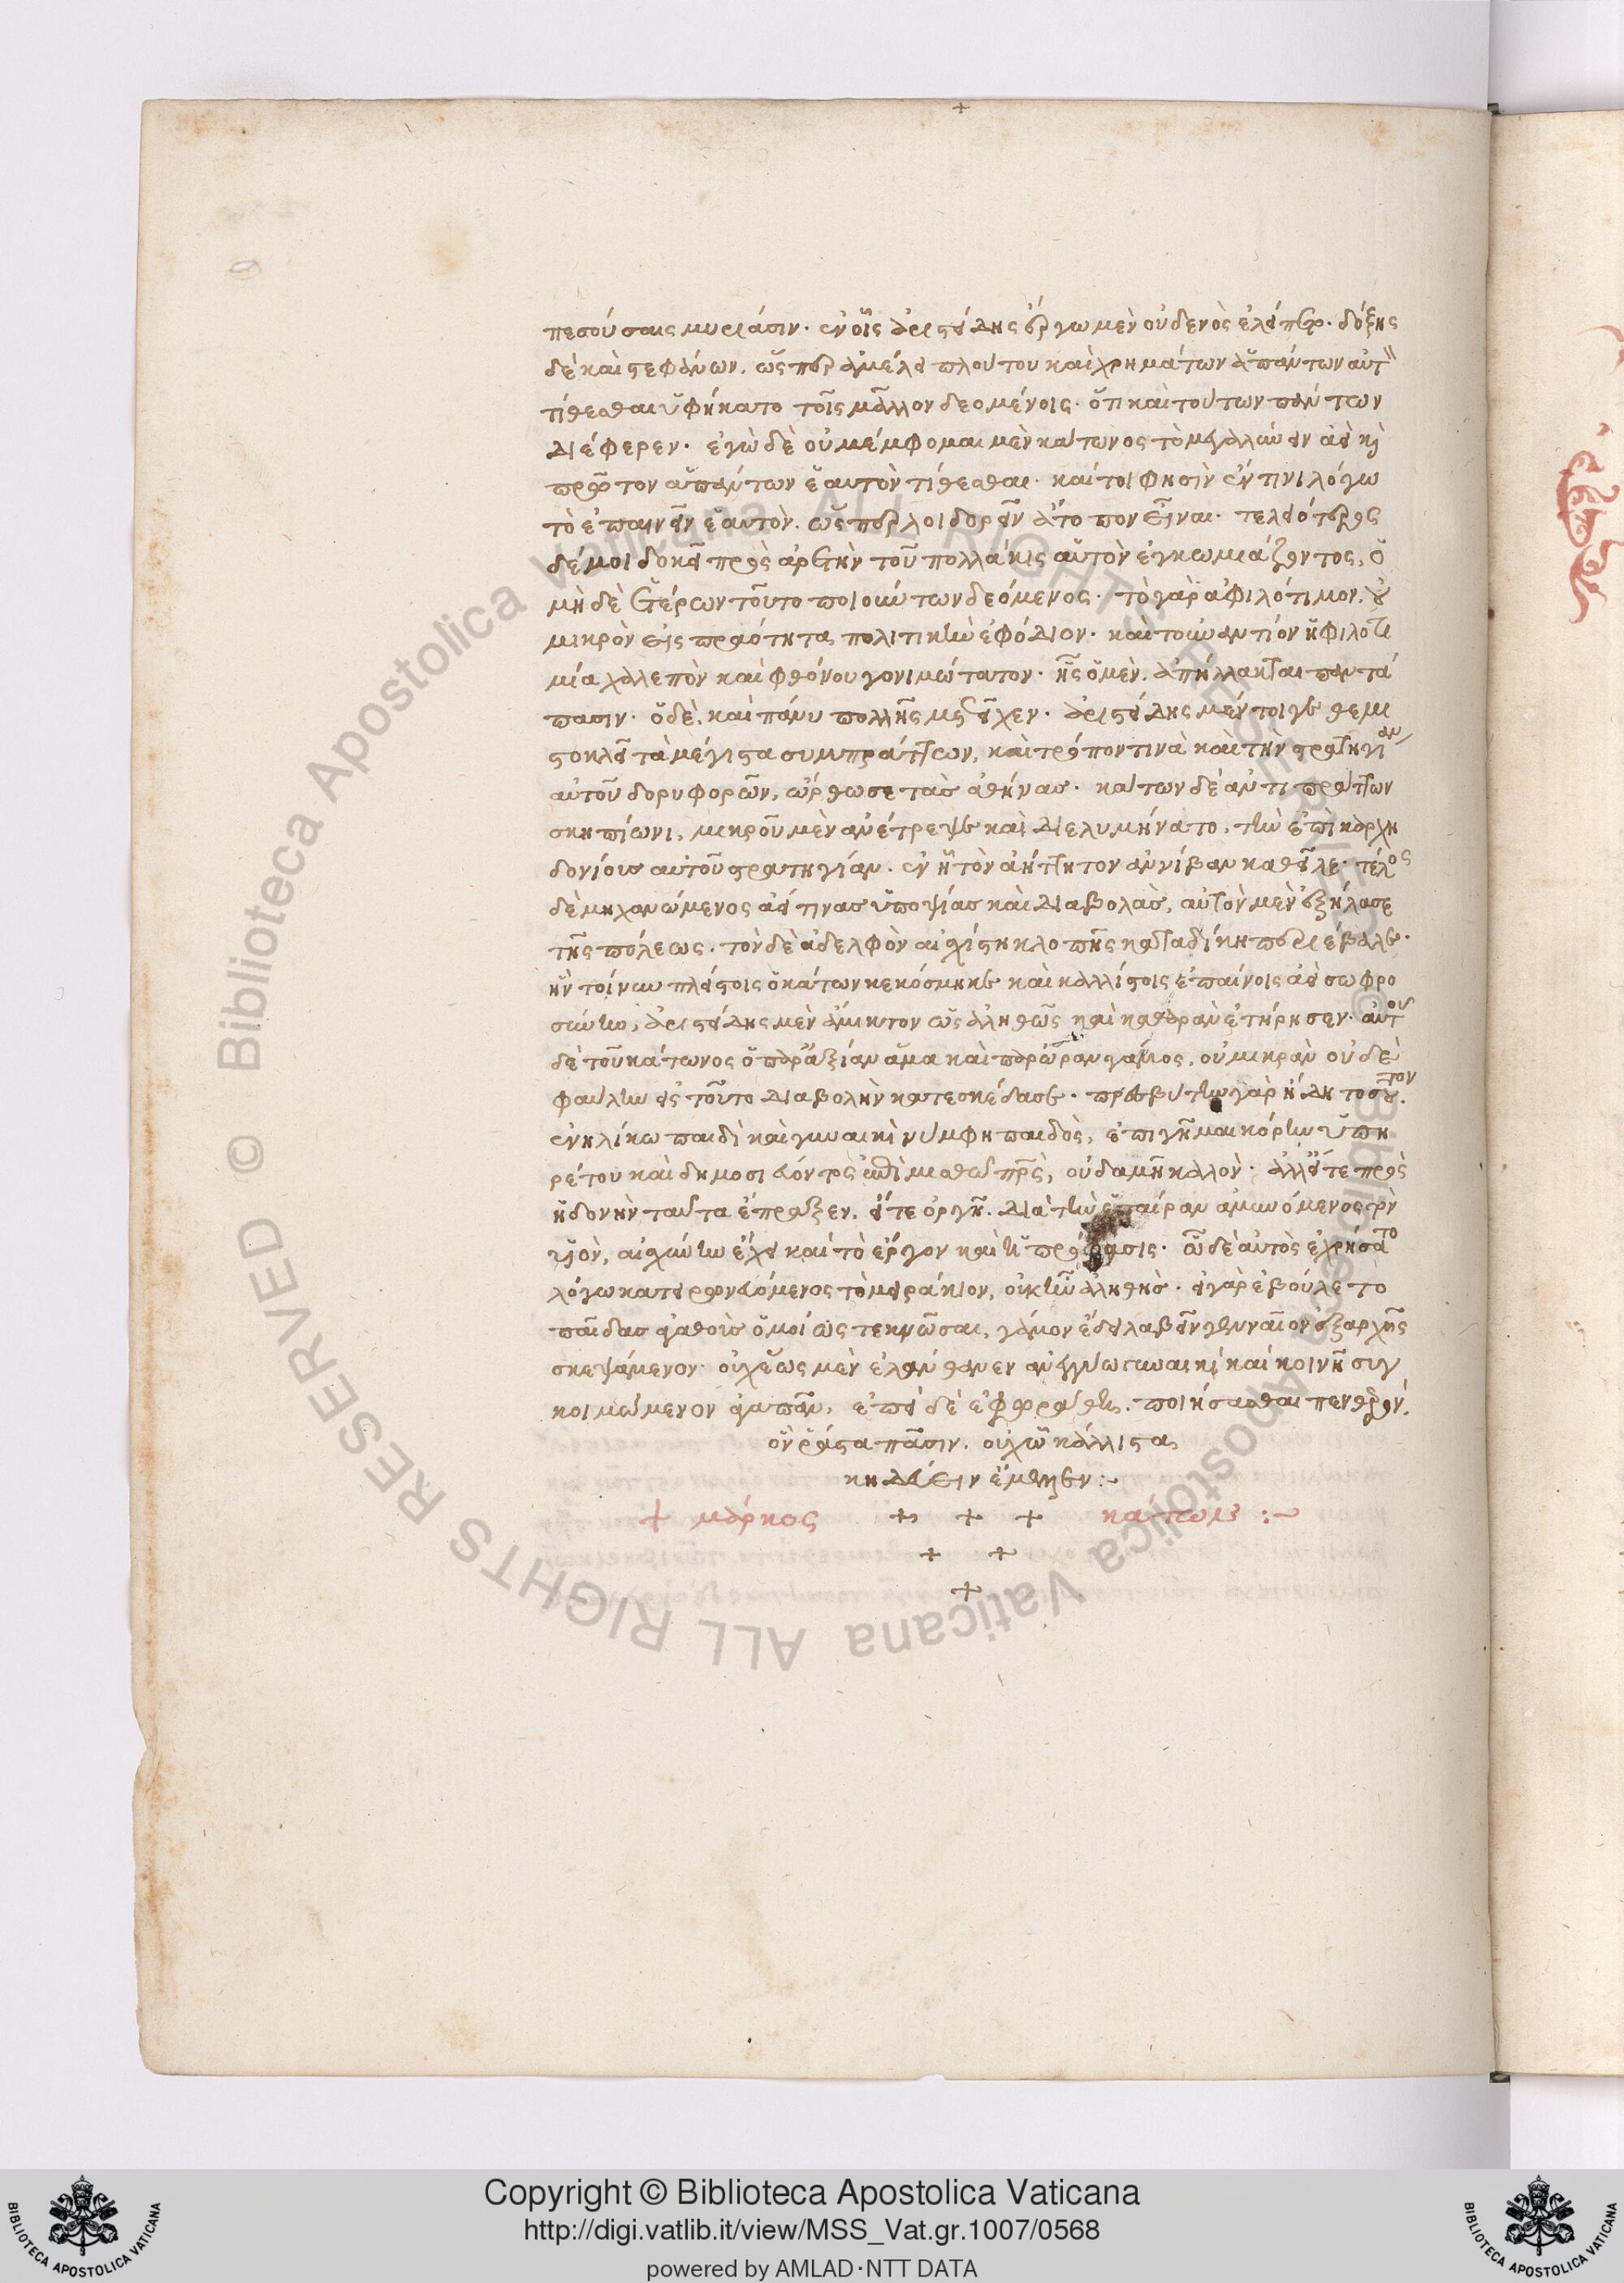 πεσούσαις μυριάσιν· ἐν οἷς ἀριστείδης ἔργω μὲν οὐδενὸς ἐλείπετο· δόξης
δὲ καὶ στεφάνων, ὥσπερ ἀμέλει πλούτου καὶ χρημάτων ἁπάντων
τίθεσθαι ὑφήκατο τοῖς μᾶλλον δεομένοις· ὅτι καὶ τούτων πάντων
διέφερεν· ἐγὼ δὲ οὐ μέμφομαι μὲν κάτωνος τὸ μεγαλύνειν ἀεὶ καὶ
πρῶτον ἁπάντων ἑαυτὸν τίθεσθαι· καίτοι φησὶν ἔν τινι λόγω
τὸ ἐπαινεῖν ἑαυτὸν, ὥσπερ λοιδορεῖν ἄτοπον εἶναι· τελειότερος
δέ μοι δοκεῖ πρὸς ἀρετὴν τοῦ πολλάκις αὑτὸν ἐγκωμιάζοντος, ὁ
μὴ δὲ ἑτέρων τοῦτο ποιούντων δεόμενος· τὸ γὰρ ἀφιλότιμον, οὐ
μικρὸν εἰς πραότητα πολιτικὴν ἐφόδιον· καὶ τοὐναντίον ἡ φιλοτι
μία χαλεπὸν καὶ φθόνου γονιμώτατον· ἧς ὁ μὲν, ἀπήλλακται παντά
πασιν· ὁ δὲ, καὶ πάνυ πολλῆς μετεῖχεν· ἀριστείδης μέντοιγε θεμι
στοκλεῖ τὰ μέγιστα συμπράττων, καὶ τρόπον τινὰ καὶ τὴν στρατηγίαν
αὐτοῦ δορυφορῶν, ὤρθωσε τὰς ἀθήνας· κάτων δὲ ἀντιπράττων
σκηπίωνι, μικροῦ μὲν ἀνέτρεψε καὶ διελυμήνατο, τὴν ἐπὶ καρχη
δονίους αὐτοῦ στρατηγίαν· ἐν ἧ τὸν ἀήττητον ἀννίβαν καθεῖλε· τέλος
δὲ μηχανώμενος ἀεί τινας ὑποψίας καὶ διαβολὰς, αὐτὸν μὲν ἐξήλασε
τῆς πόλεως· τὸν δὲ ἀδελφὸν αἰσχίστη κλοπῆς καταδίκη περιέβαλε·
ἣν τοίνυν πλείστοις ὁ κάτων κεκόσμηκε καὶ καλλίστοις ἐπαίνοις ἀεὶ σωφρο
σύνην, ἀριστείδης μὲν ἄμικτον ὡς ἀληθῶς καὶ καθαρὰν ἐτήρησεν· αὐτοῦ
δὲ τοῦ κάτωνος ὁ παρ' ἀξίαν ἅμα καὶ παρ' ὥραν γάμος, οὐ μικρὰν οὐδὲ
φαύλην εἰς τοῦτο διαβολὴν κατεσκέδασε· πρεσβύτην γὰρ ἤδη τοσοῦτον
ἐνηλίκω παιδὶ καὶ γυναικὶ νύμφη παιδὸς, ἐπιγῆμαι κόρην ὑπη
ρέτου καὶ δημοσιεύοντος ἐπὶ μισθῶ πρὸς, οὐδαμῆ καλὸν· ἀλλ' εἴτε πρὸς
ἡδονὴν ταῦτα ἔπραξεν, εἴτε ὀργῆ, διὰ τὴν ἑταίραν ἀμυνόμενος τὸν
υἱὸν, αἰσχύνην ἔχει καὶ τὸ ἔργον καὶ ἡ πρόφασις· ὧ δὲ αὐτὸς ἐχρήσατο
λόγω κατειρωνευόμενος τὸ μειράκιον, οὐκ ἦν ἀληθὴς· εἰ γὰρ ἐβούλετο
παῖδας ἀγαθοὺς ὁμοίως τεκνῶσαι, γάμον ἔδει λαβεῖν γενναῖον ἐξ ἀρχῆς
σκεψάμενον· οὐχ ἕως μὲν ἐλάνθανεν ἀνεγγύω γυναικὶ καὶ κοινῆ συγ
κοιμώμενον ἀγαπᾶν, ἐπεὶ δὲ ἐφωράθη, ποιήσασθαι πενθερὸν,
ὃν ῥᾶστα πείσειν, οὐχ ὧ κάλλιστα
κηδεύειν ἔμελλεν :~
+ μάρκος + + + κάτων :~
+ +
+
Copyright © Biblioteca Apostolica Vaticana
http://digi.vatlib.it/view/MSS_Vat.gr.1007/0568
powered by AMLAD·NTT DATA
BIBLIOTECA APOSTOLICA VATICANA
BIBLIOTECA APOSTOLICA VATICANA
© Biblioteca Apostolica Vaticana ALL RIGHTS RESERVED
© Biblioteca Apostolica Vaticana ALL RIGHTS RESERVED